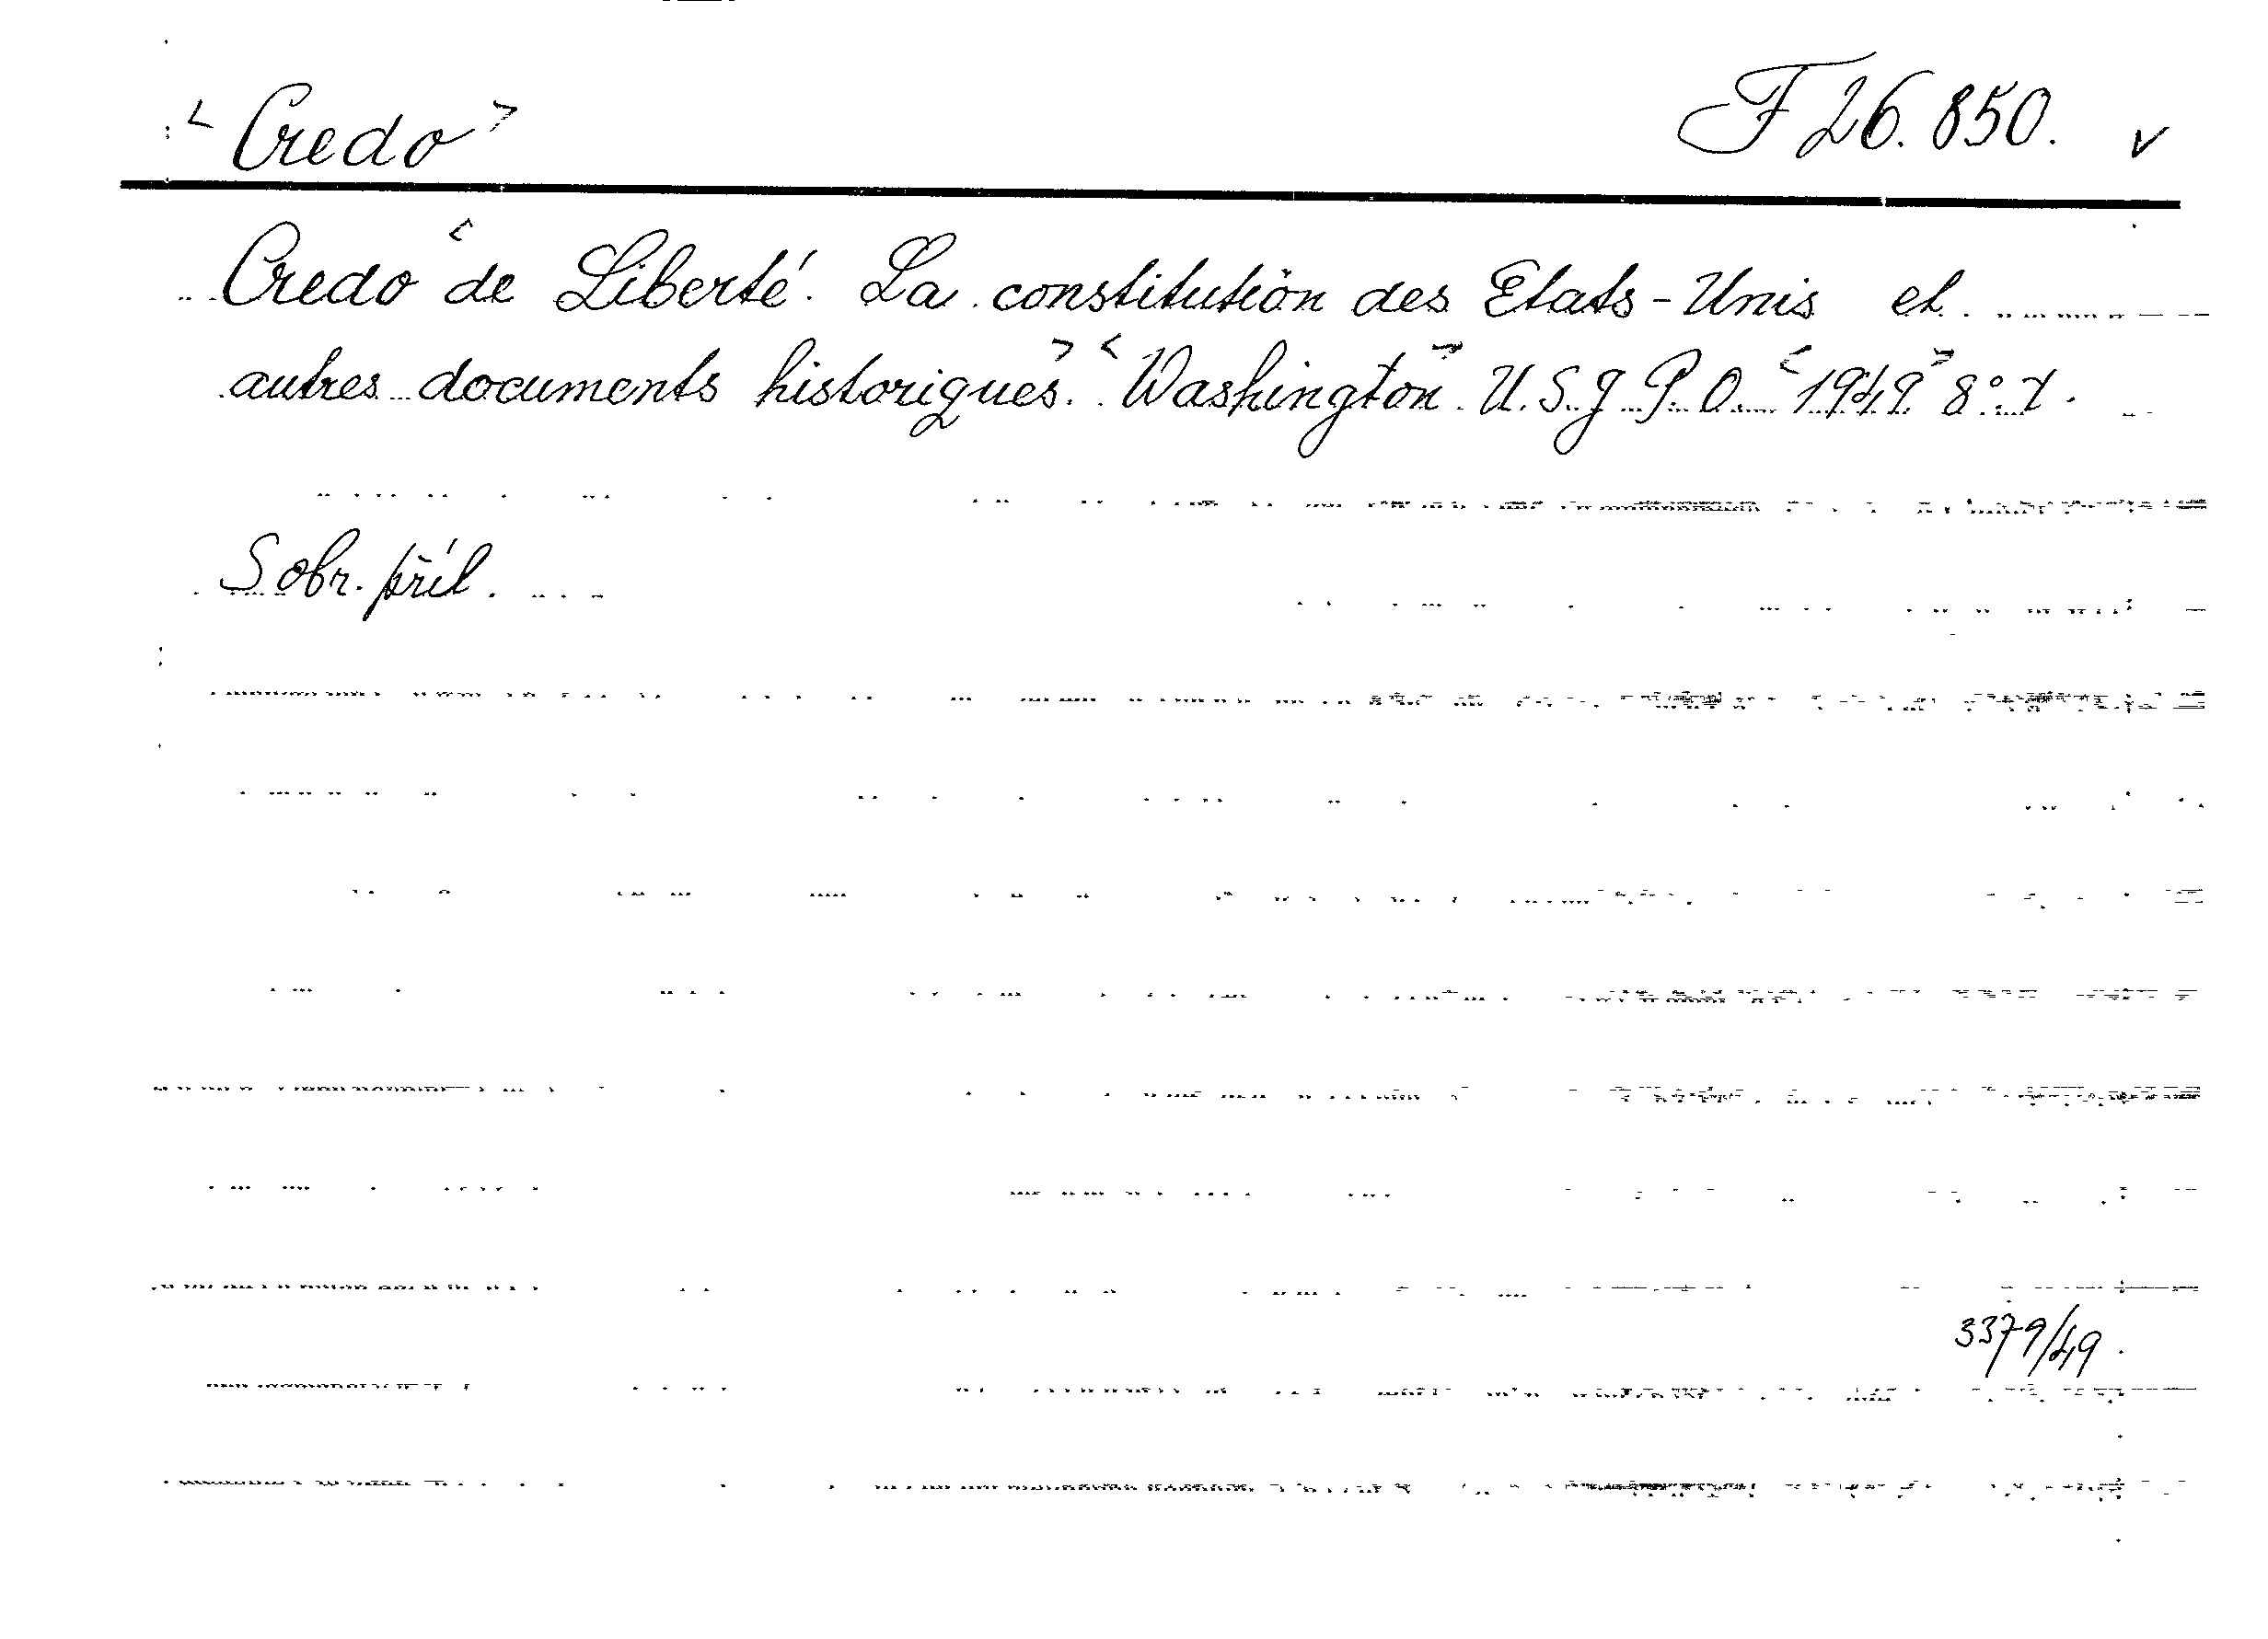 <Credo> F 26.850. v
Credo <de Liberté. La constitution des Etats-Unis et
autres documents historiques.> <Washington> U.S.G.P.O. <1949> 8°.
S obr. příl.
3379/49.